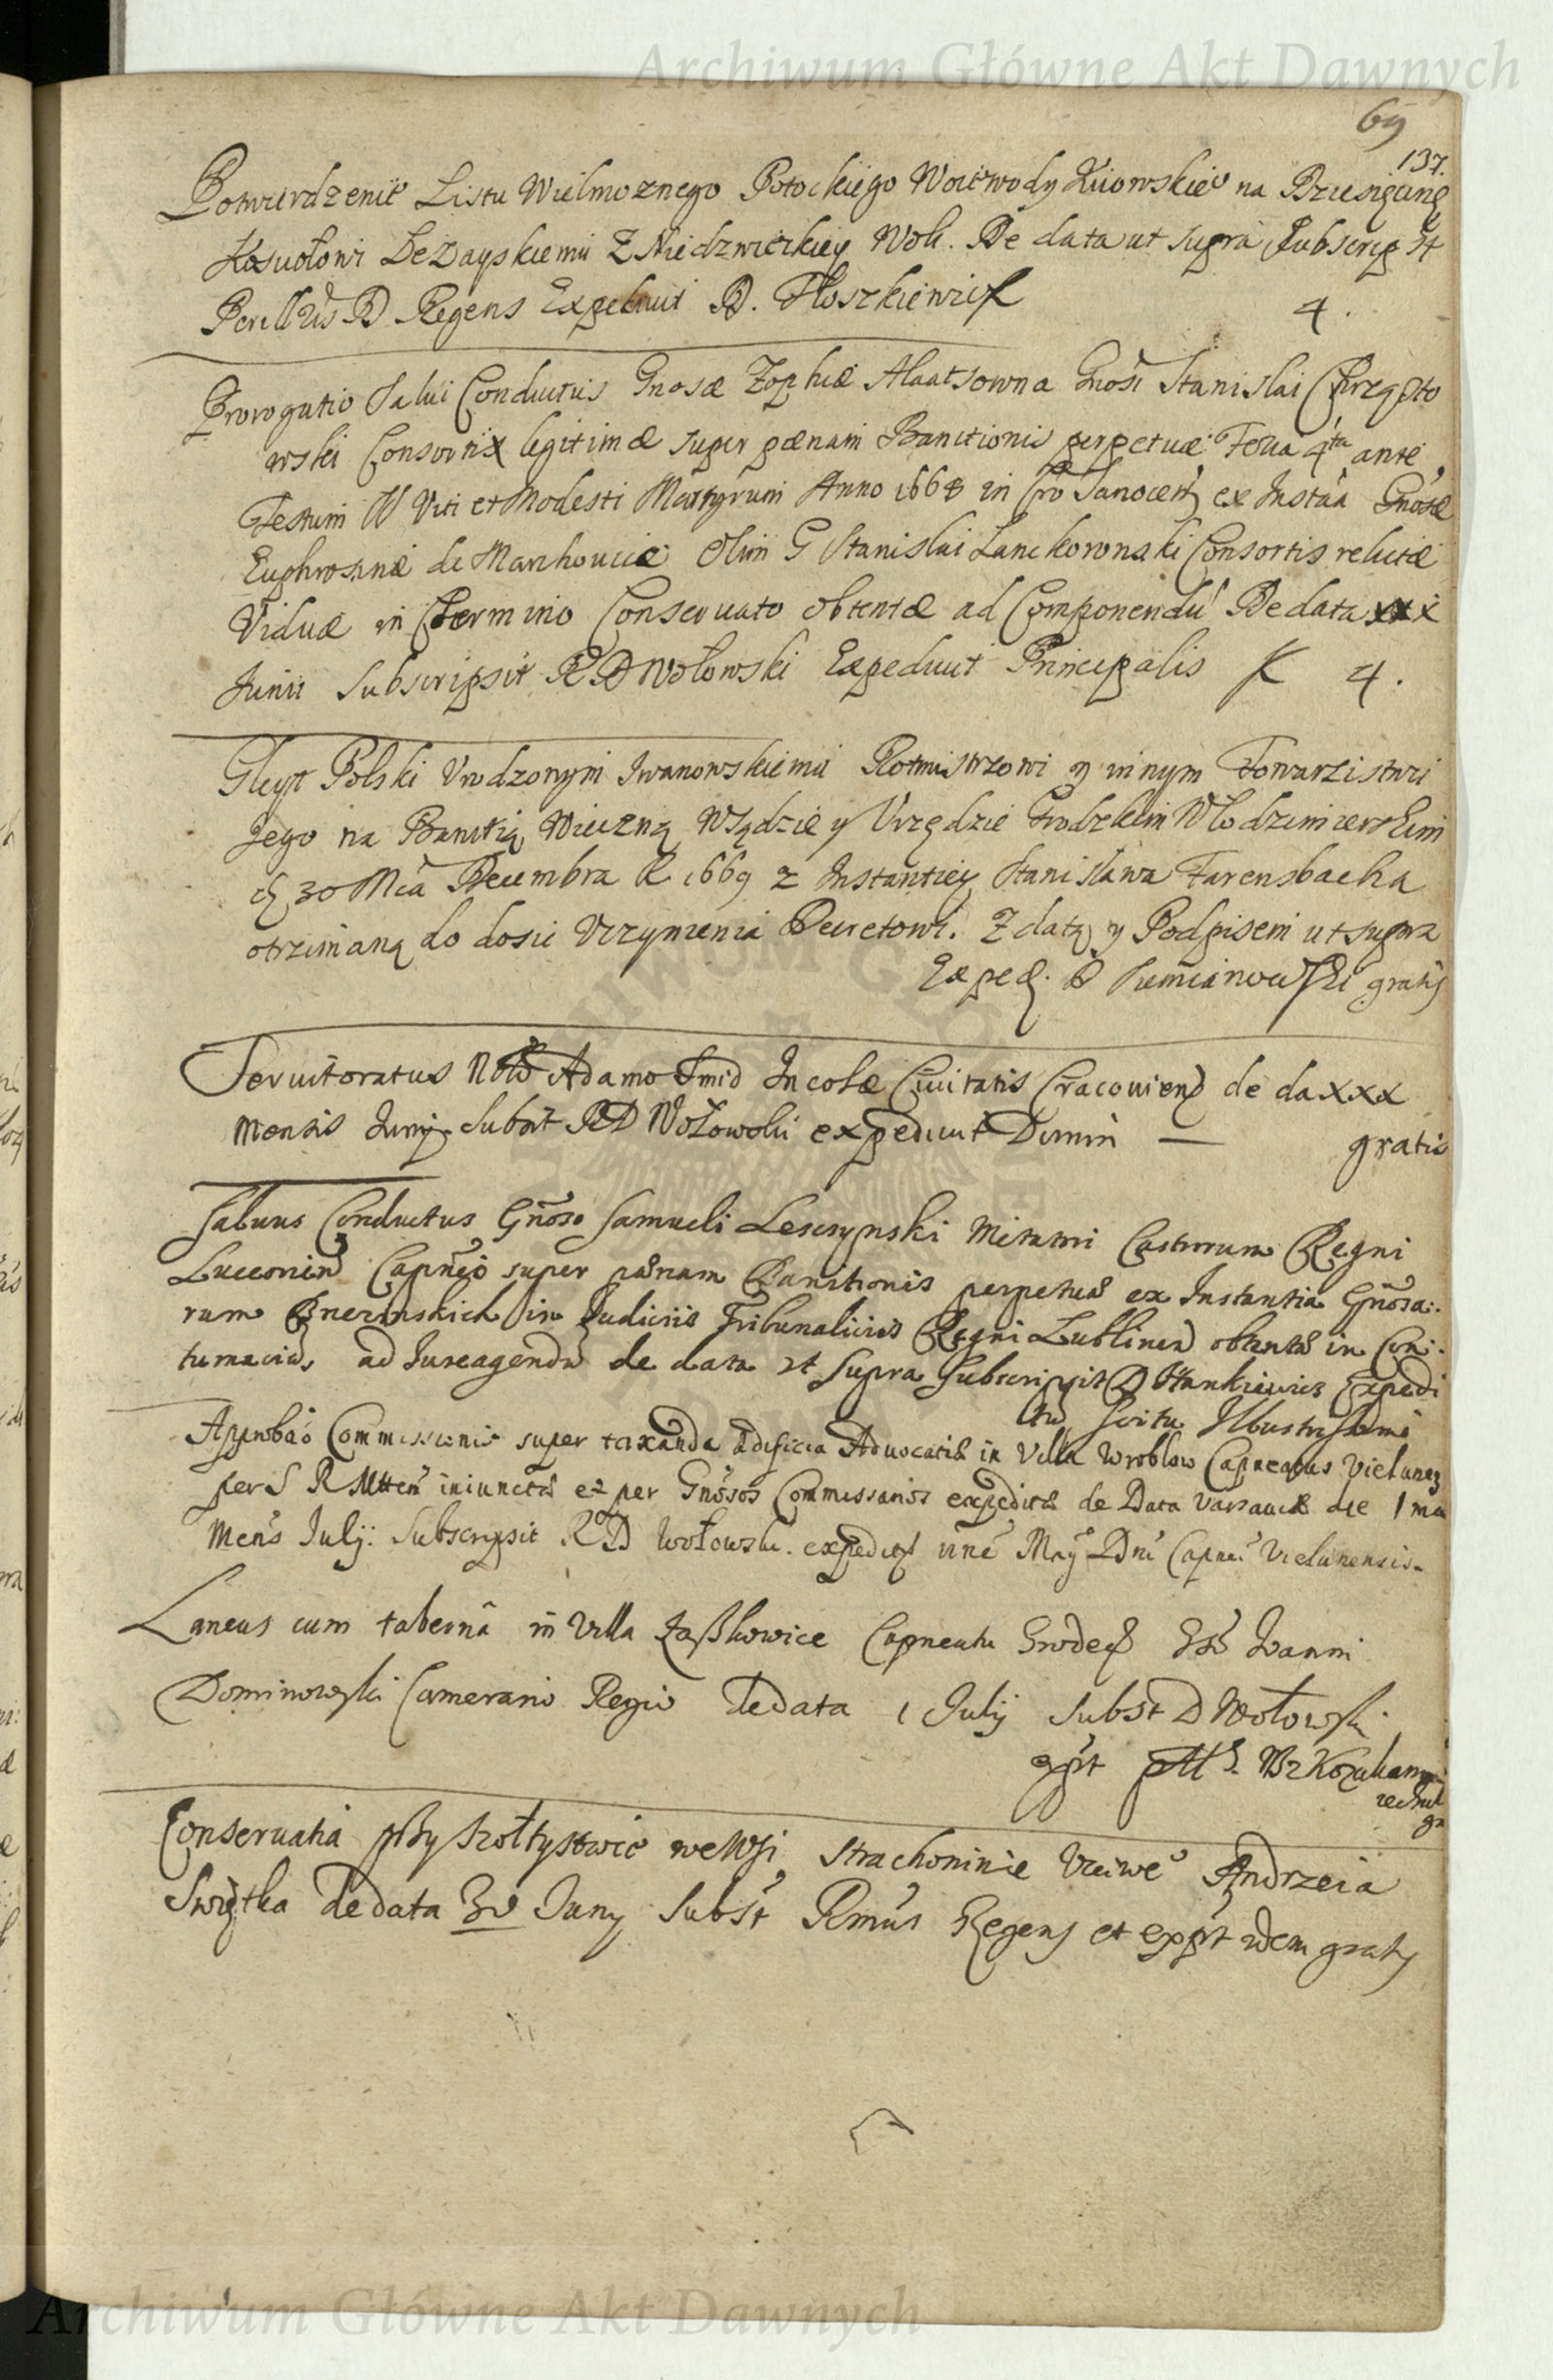 Archiwum Główne Akt Dawnych
69
137.
Potwierdzenie Listu Wielmoznego Potockiego Woiewody Kiiowskieo na Przesięcine
Kosuołowi Lezayskiemu Z Niedzwieckiey Woli. De data ut supra Subscripsit
Perillris D Regens Expediuit D. Floszkiewicz 4.
Prorogatio Salui Conductus Gnosæ Zophiæ Stanisłai Chrząsto
wski Consortis legitimæ super pænam Banitionis perpetuæ Feria 4ta ante
Festum SS Viti et Modesti Martyrum Anno 1668 in Cro Sanocen ex Instãa Gnosæ
Euphrosinæ de Marchocice Olim G Stanislai Lanckoronski Consortis relictæ
Viduæ in termino Conseruato obtentæ ad Componendũ De data xxx
Junii Subscripsit R D Wołowski Expediuit Principalis 4.
Gleyt Polski Vrodzonym Iwanowskiemu Rotmistrzowi y innym Towarzistwu
Jego na Banitią Wieczną Wsądzie y Vrzędzie Grodzkim Włodzimierskim
d 30 Mca Decembra R 1669 z Instantiey Stanisława Farensbacha
otrzimaną do dosic Vczynienia Decretowi. Z datą y Podpisem ut supra
Exped. D Sumianowski gratis
Seruitoratus Adamo Smid Incolæ Ciuitatis Cracouien de da xxx
Mensis Junij Subsit RD Wołowski expediuit Dimin — gratis
Saluus Conductus Gñoso Samueli Lesczynski Metatori Castrorum Regni
Lucceorien Capñeo super pænam Banitionis perpetuæ ex Instantia Gñosa:
rum in Iudiciis Tribunaliciis Regni Lublinen obtentæ in Con:
tumaciã, ad Iureagendũ de data ut supra Subscripsit D Hankiewicz Expedi
tũ scitu Illustrissimi
Approbão Commissionis super taxanda ædificia Aduocatiæ in Villa Wroblow Capneatus Vielunen
per S R Mtten iniunctæ et per Gnosos Commissarios expeditæ de Data Varsauiæ die 1 ma
Mens Julij: Subscripsit R D Wołowski. expedit Dni Capnei Vielunensis.
Laneus cum tabernâ in Villa Zaszkowice Capneatu Grodeƈ Ioanni
Dominowski Camerario Regio de data 1 Julij subst D Wołowski
expt
Conseruatia przy Szołtystwie we Wsi Strachoninie Vcciwe° Andrzeia
Swiętka de data 30 Juny Subst Rmus Regens et expt idem gratis
Archiwum Główne Akt Dawnych